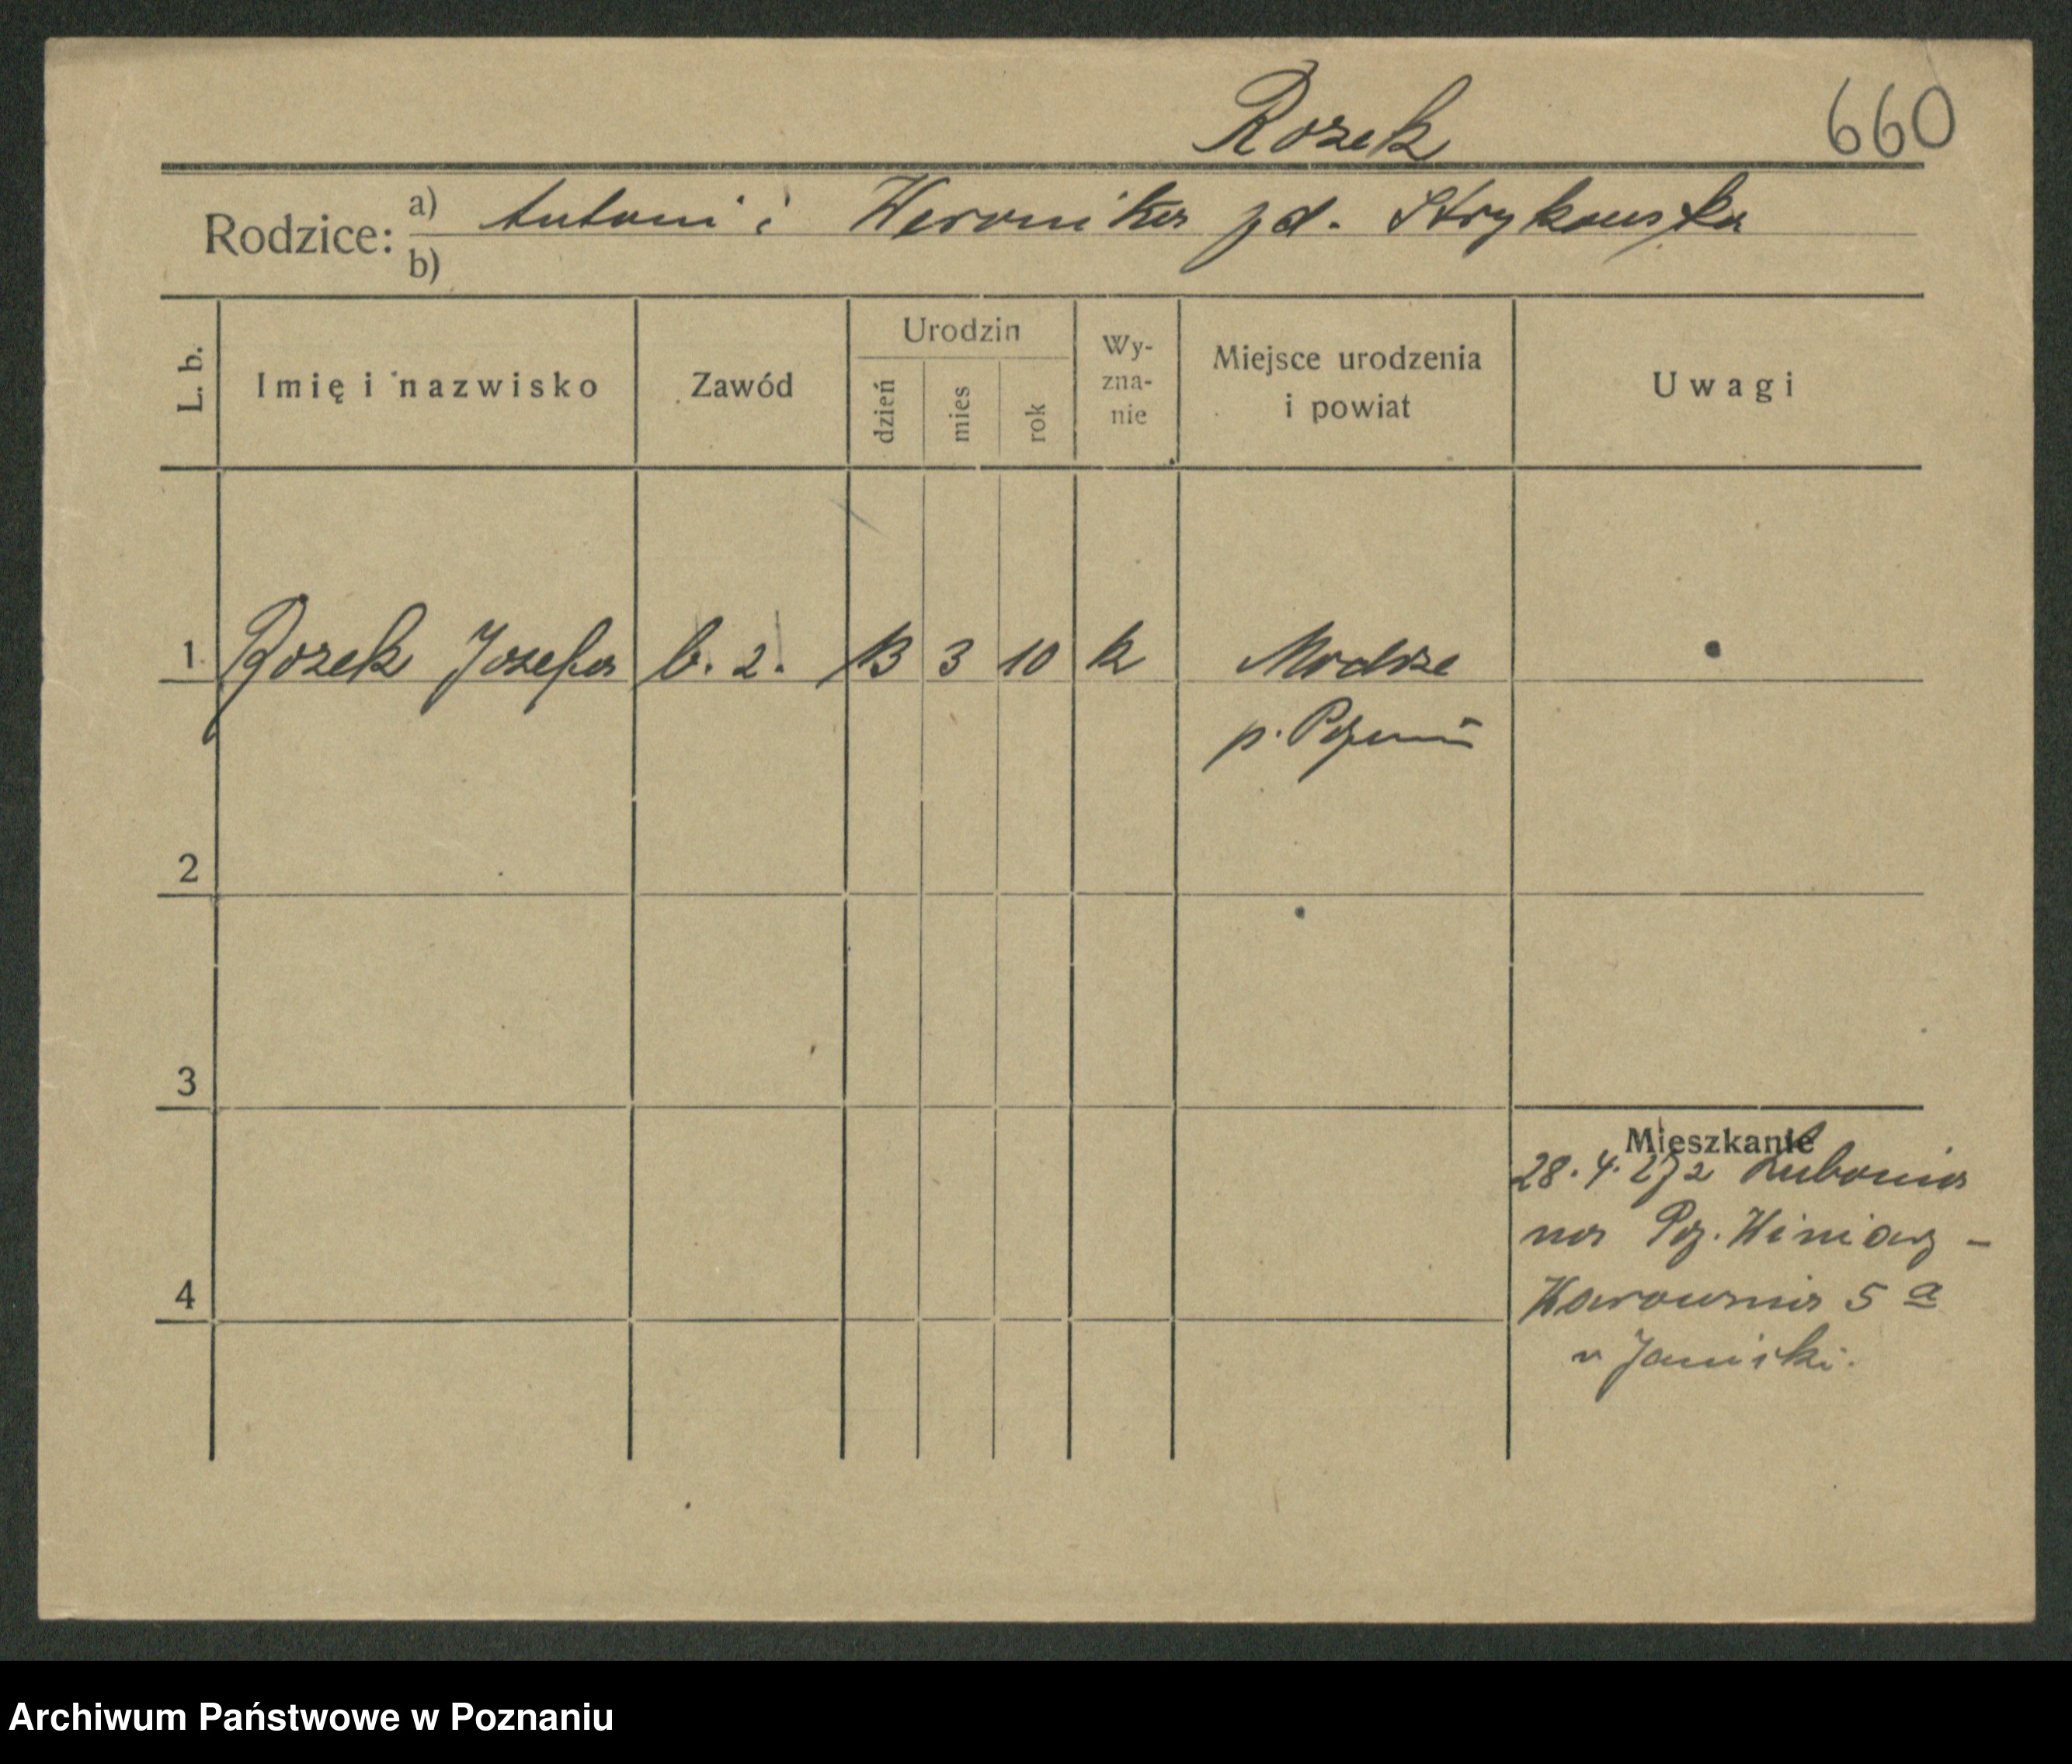 Rozek 660
Rodzice: a) Antoni i Weronika pd. Strykowska
b)
L. b. Imię i nazwisko Zawód Urodzin dzień mies rok Wy-zna-nie Miejsce urodzenia i powiat Uwagi
1 Rozek Josefa b. z. 13 3 10 k Modrze
p. Poznań
2
3
4
Mieszkanie
28. 4. 27 z Lubonia
na Poz. Winiary -
5 a
Archiwum Państwowe w Poznaniu